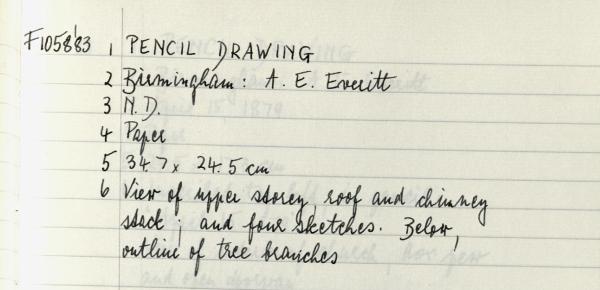 F1058'83 1 PENCIL DRAWING
2 Birmingham: A. E. Everitt
3 N.D.
4 Paper
5 34.7 x 24.5 cm
6 View of upper storey, roof and chimney
stack, and four sketches. Below,
outline of tree branches